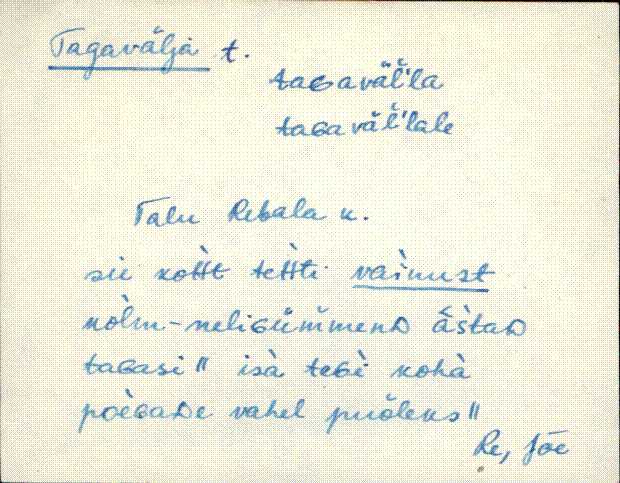 Tagavälja t.
taGaväl̆'la
taGaväl̆'lale
Talu Rebala k.
sìi koh̀tt teh̀tti vaìnust
kòlm-neliGüm̆menD ās̀taD
taGasi // isà teGì kohà
poèGaDe vahel puòleks //
Re, Jõe